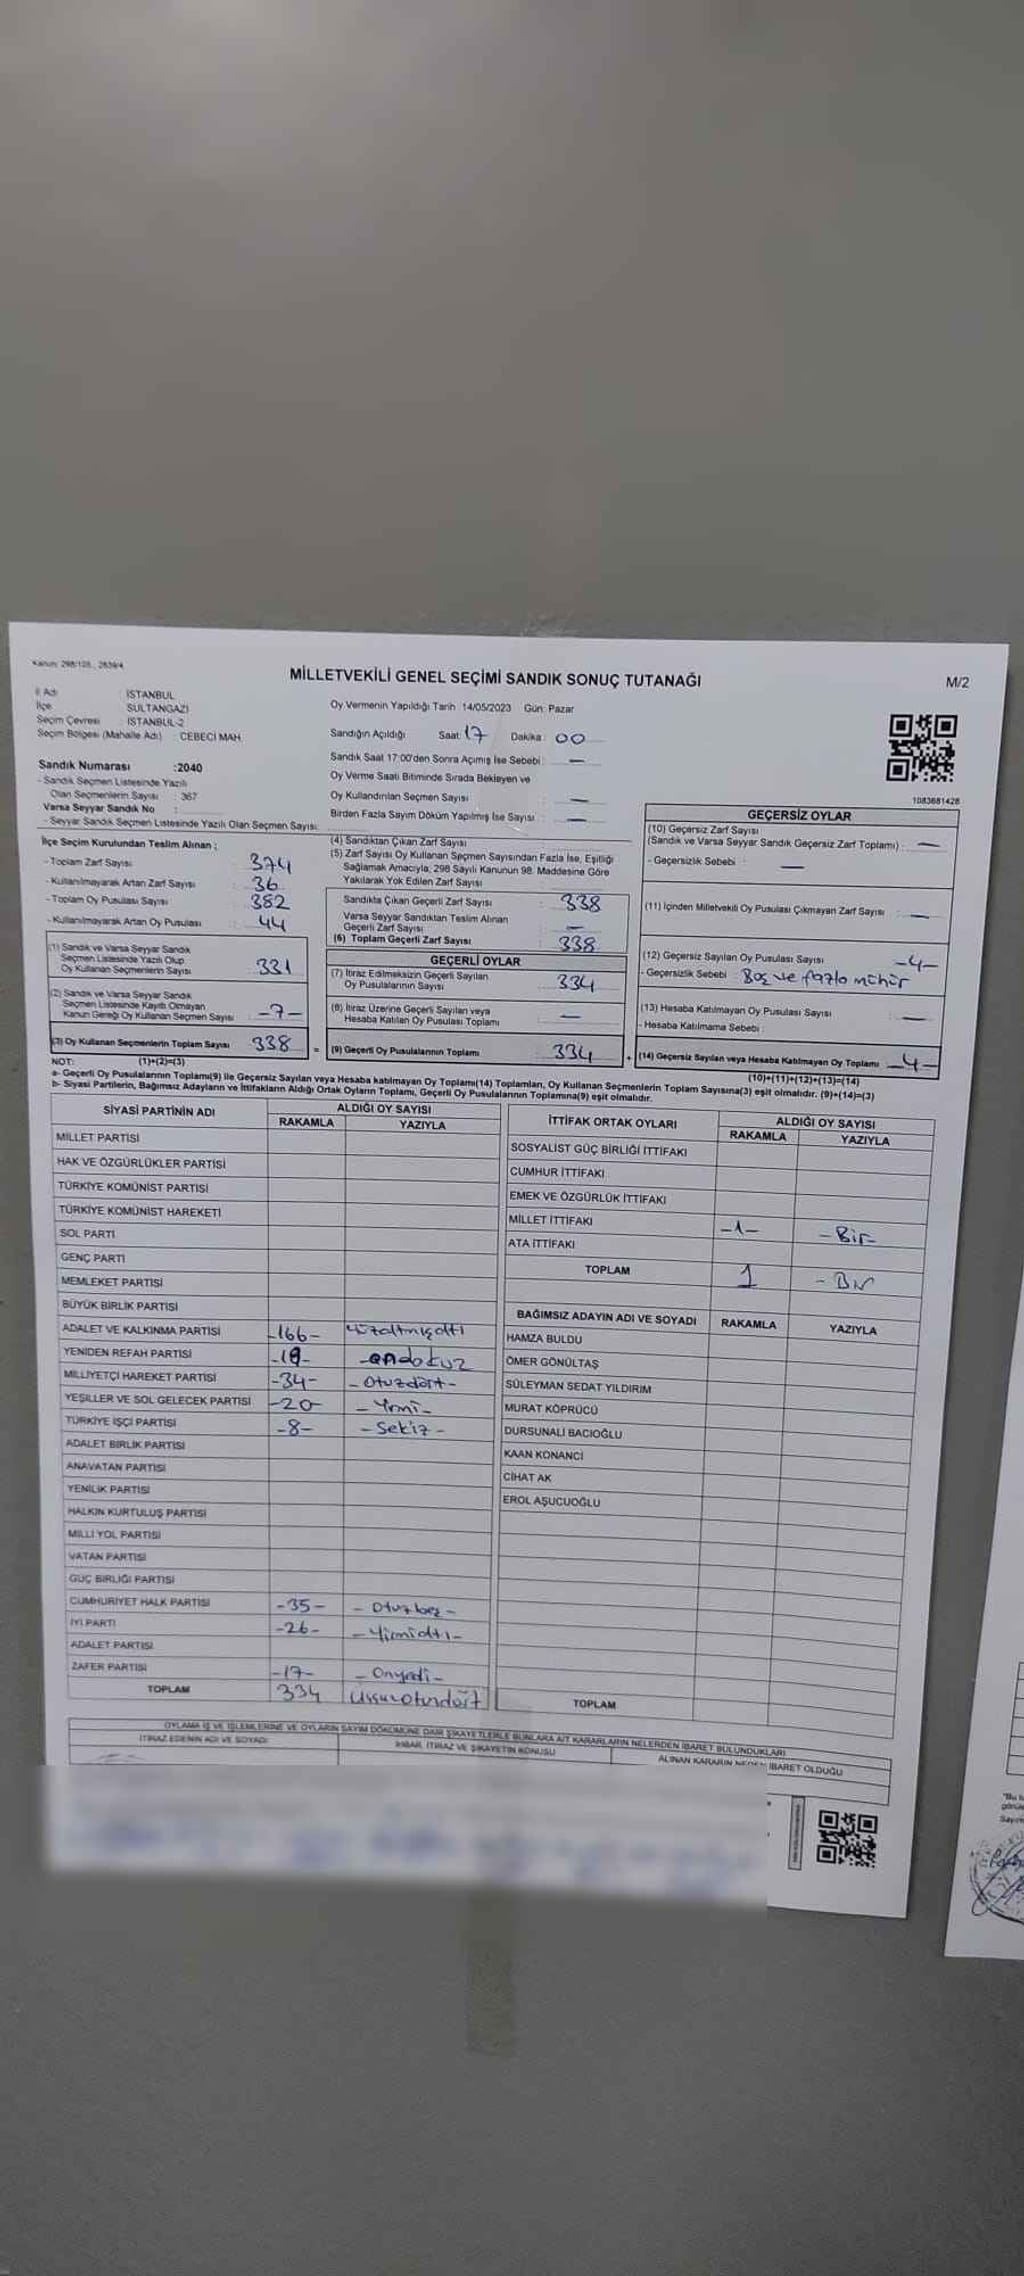 Kanun: 298/105., 2839/4
MİLLETVEKİLİ GENEL SEÇİMİ SANDIK SONUÇ TUTANAĞI
M/2
İl Adı : İSTANBUL
İlçe : SULTANGAZİ
Seçim Çevresi : İSTANBUL-2
Seçim Bölgesi (Mahalle Adı) : CEBECİ MAH.
Sandık Numarası :2040
- Sandık Seçmen Listesinde Yazılı
Olan Seçmenlerin Sayısı : 367
Varsa Seyyar Sandık No :
- Seyyar Sandık Seçmen Listesinde Yazılı Olan Seçmen Sayısı:
Oy Vermenin Yapıldığı Tarih :14/05/2023 Gün: Pazar
Sandığın Açıldığı Saat: 17 Dakika: 00
Sandık Saat 17:00'den Sonra Açımış İse Sebebi : —
Oy Verme Saati Bitiminde Sırada Bekleyen ve
Oy Kullandırılan Seçmen Sayısı : —
Birden Fazla Sayım Döküm Yapılmış İse Sayısı : —
1083681428
İlçe Seçim Kurulundan Teslim Alınan ;
- Toplam Zarf Sayısı : 374
- Kullanılmayarak Artan Zarf Sayısı : 36
- Toplam Oy Pusulası Sayısı : 382
- Kullanılmayarak Artan Oy Pusulası : 44
(1) Sandık ve Varsa Seyyar Sandık
Seçmen Listesinde Yazılı Olup
Oy Kullanan Seçmenlerin Sayısı : 331
(2) Sandık ve Varsa Seyyar Sandık
Seçmen Listesinde Kayıtlı Olmayan
Kanun Gereği Oy Kullanan Seçmen Sayısı : -7-
(3) Oy Kullanan Seçmenlerin Toplam Sayısı : 338
(1)+(2)=(3)
(4) Sandıktan Çıkan Zarf Sayısı
(5) Zarf Sayısı Oy Kullanan Seçmen Sayısından Fazla İse, Eşitliği
Sağlamak Amacıyla; 298 Sayılı Kanunun 98. Maddesine Göre
Yakılarak Yok Edilen Zarf Sayısı :
Sandıkta Çıkan Geçerli Zarf Sayısı : 338
Varsa Seyyar Sandıktan Teslim Alınan
Geçerli Zarf Sayısı : —
(6) Toplam Geçerli Zarf Sayısı : 338
GEÇERLİ OYLAR
(7) İtiraz Edilmeksizin Geçerli Sayılan
Oy Pusulalarının Sayısı : 334
(8) İtiraz Üzerine Geçerli Sayılan veya
Hesaba Katılan Oy Pusulası Toplamı : —
= (9) Geçerli Oy Pusulalarının Toplamı : 334
GEÇERSİZ OYLAR
(10) Geçersiz Zarf Sayısı
(Sandık ve Varsa Seyyar Sandık Geçersiz Zarf Toplamı) : —
- Geçersizlik Sebebi : —
(11) İçinden Milletvekili Oy Pusulası Çıkmayan Zarf Sayısı : —
(12) Geçersiz Sayılan Oy Pusulası Sayısı : -4-
- Geçersizlik Sebebi : Boş ve fazla mühür
(13) Hesaba Katılmayan Oy Pusulası Sayısı : —
- Hesaba Katılmama Sebebi :
+ (14) Geçersiz Sayılan veya Hesaba Katılmayan Oy Toplamı : -4-
(10)+(11)+(12)+(13)=(14)
NOT:
a- Geçerli Oy Pusulaları Toplamı(9) ile Geçersiz Sayılan veya Hesaba katılmayan Oy Toplamı(14) Toplamları, Oy Kullanan Seçmenlerin Toplam Sayısına(3) eşit olmalıdır. (9)+(14)=(3)
b- Siyasi Partilerin, Bağımsız Adayların ve İttifakların Aldığı Ortak Oyların Toplamı, Geçerli Oy Pusulalarının Toplamına(9) eşit olmalıdır.
SİYASİ PARTİNİN ADI ALDIĞI OY SAYISI
RAKAMLA YAZIYLA
MİLLET PARTİSİ
HAK VE ÖZGÜRLÜKLER PARTİSİ
TÜRKİYE KOMÜNİST PARTİSİ
TÜRKİYE KOMÜNİST HAREKETİ
SOL PARTİ
GENÇ PARTİ
MEMLEKET PARTİSİ
BÜYÜK BİRLİK PARTİSİ
ADALET VE KALKINMA PARTİSİ -166- Yüzaltmışaltı
YENİDEN REFAH PARTİSİ -19- -ondokuz
MİLLİYETÇİ HAREKET PARTİSİ -34- - Otuzdört -
YEŞİLLER VE SOL GELECEK PARTİSİ -20- - Yirmi -
TÜRKİYE İŞÇİ PARTİSİ -8- - Sekiz -
ADALET BİRLİK PARTİSİ
ANAVATAN PARTİSİ
YENİLİK PARTİSİ
HALKIN KURTULUŞ PARTİSİ
MİLLİ YOL PARTİSİ
VATAN PARTİSİ
GÜÇ BİRLİĞİ PARTİSİ
CUMHURİYET HALK PARTİSİ -35- - Otuzbeş -
İYİ PARTİ -26- - Yirmialtı -
ADALET PARTİSİ
ZAFER PARTİSİ -17- - Onyedi -
TOPLAM 334
İTTİFAK ORTAK OYLARI ALDIĞI OY SAYISI
RAKAMLA YAZIYLA
SOSYALİST GÜÇ BİRLİĞİ İTTİFAKI
CUMHUR İTTİFAKI
EMEK VE ÖZGÜRLÜK İTTİFAKI
MİLLET İTTİFAKI -1- - Bir -
ATA İTTİFAKI
TOPLAM 1 - Bir
BAĞIMSIZ ADAYIN ADI VE SOYADI RAKAMLA YAZIYLA
HAMZA BULDU
ÖMER GÖNÜLTAŞ
SÜLEYMAN SEDAT YILDIRIM
MURAT KÖPRÜCÜ
DURSUNALİ BACIOĞLU
KAAN KONANCİ
CİHAT AK
EROL AŞUCUOĞLU
TOPLAM
OYLAMA İŞ VE İŞLEMLERİNE VE OYLARIN SAYIM DÖKÜMÜNE DAİR ŞİKAYETLERLE BUNLARA AİT KARARLARIN NELERDEN İBARET BULUNDUKLARI
İTİRAZ EDENİN ADI VE SOYADI İHBAR, İTİRAZ VE ŞİKAYETİN KONUSU ALINAN KARARIN NEDEN İBARET OLDUĞU